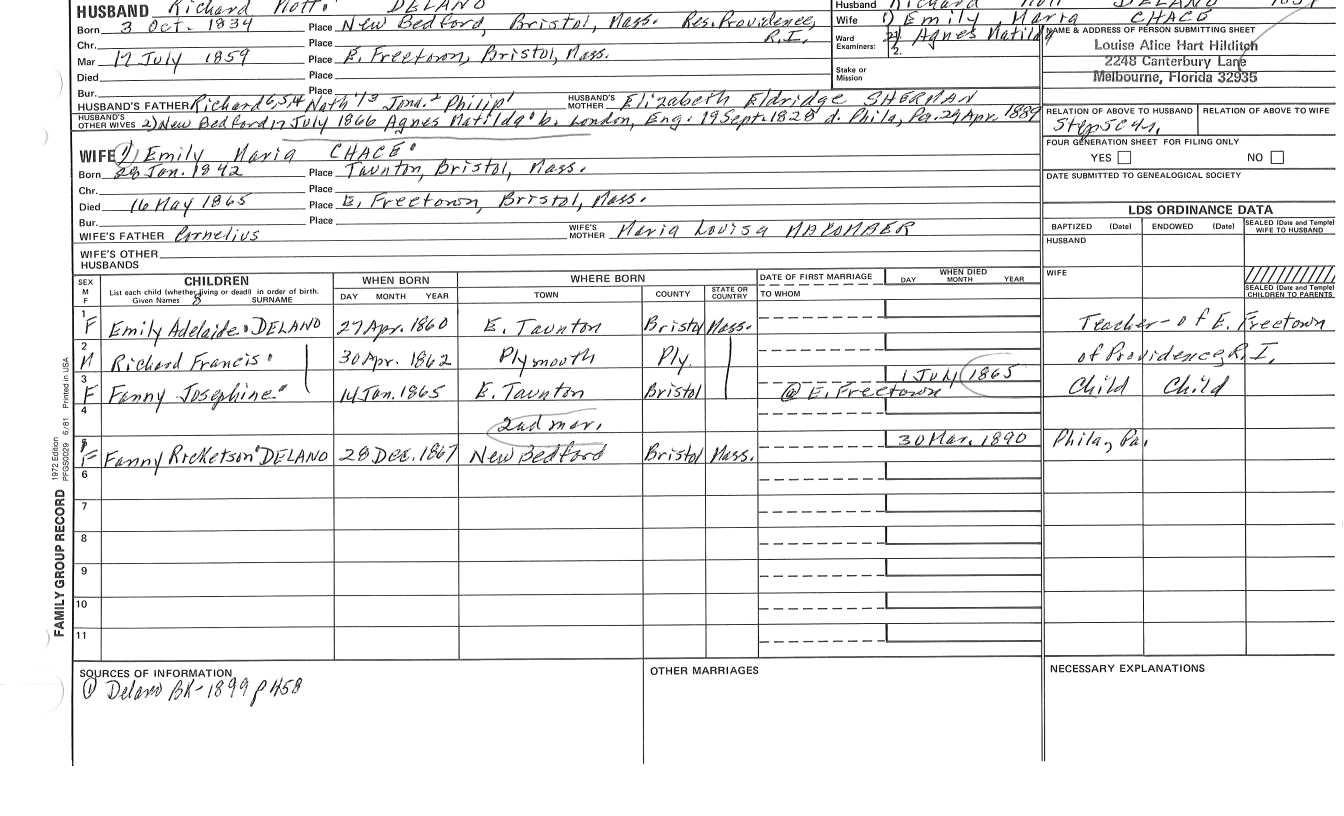 HUSBAND Richard Mott DELANO
Born 3 Oct. 1834 Place New Bedford, Bristol, Mass. Res. Providence, R.I.
Chr. Place
Mar 17 July 1859 Place E. Freetown, Bristol, Mass.
Died Place
Bur. Place
HUSBAND'S FATHER Richard 6,5,4 Nath'l 3 Jona. 2 Philip 1 HUSBAND'S MOTHER Elizabeth Eldridge SHERMAN
HUSBAND'S OTHER WIVES 2) New Bedford 17 July 1866 Agnes Matilda b. London, Eng. 19 Sept. 1828 d. Phila, Pa. 29 Apr. 1889
Husband Richard Mott DELANO 1834
Wife 1) Emily Maria CHACE
Ward Examiners: 2) Agnes Matilda
2.
Stake or Mission
NAME & ADDRESS OF PERSON SUBMITTING SHEET
Louise Alice Hart Hilditch
2248 Canterbury Lane
Melbourne, Florida 32935
RELATION OF ABOVE TO HUSBAND RELATION OF ABOVE TO WIFE
FOUR GENERATION SHEET FOR FILING ONLY
YES NO
DATE SUBMITTED TO GENEALOGICAL SOCIETY
WIFE 1) Emily Maria CHACE
Born 28 Jan. 1842 Place Taunton, Bristol, Mass.
Chr. Place
Died 16 May 1865 Place E. Freetown, Bristol, Mass.
Bur. Place
WIFE'S FATHER Cornelius WIFE'S MOTHER Maria Louisa MACOMBER
WIFE'S OTHER HUSBANDS
LDS ORDINANCE DATA
BAPTIZED (Date) ENDOWED (Date) SEALED (Date and Temple) WIFE TO HUSBAND
HUSBAND
WIFE
SEALED (Date and Temple) CHILDREN TO PARENTS
SEX M F CHILDREN List each child (whether living or dead) in order of birth. Given Names SURNAME WHEN BORN DAY MONTH YEAR WHERE BORN TOWN COUNTY STATE OR COUNTRY DATE OF FIRST MARRIAGE TO WHOM WHEN DIED DAY MONTH YEAR
1 F Emily Adelaide DELANO 27 Apr. 1860 E. Taunton Bristol Mass. Teacher - of E. Freetown
2 M Richard Francis 30 Apr. 1862 Plymouth Ply. of Providence, R.I.
3 F Fanny Josephine 14 Jan. 1865 E. Taunton Bristol 1 July 1865 @ E. Freetown Child Child
4 2nd mar.
5 F Fanny Ricketson DELANO 28 Dec. 1867 New Bedford Bristol Mass. 30 Mar. 1890 Phila, Pa.
6
7
8
9
10
11
SOURCES OF INFORMATION
① Delano BK-1899 p 458
OTHER MARRIAGES
NECESSARY EXPLANATIONS
FAMILY GROUP RECORD 1972 Edition PFGS0029 6/81 Printed in USA